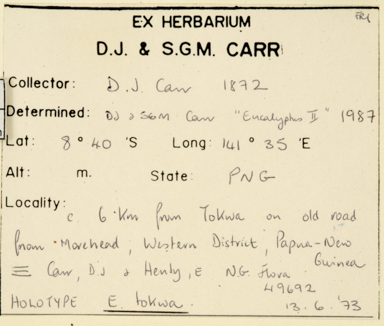 EX HERBARIUM
D.J. & S.G.M. CARR
Collector: D.J. Carr 1872
Determined: DJ & SGM Carr "Eucalyptus II" 1987
Lat: 8° 40 'S Long: 141° 35 'E
Alt: m. State: PNG
Locality: c 6 km from Tokwa on old road
from Morehead, Western District, Papua-New
Guinea
≡ Carr, DJ & Henty, E NG. Flora
49692
HOLOTYPE E. tokwa. 13.6.'73